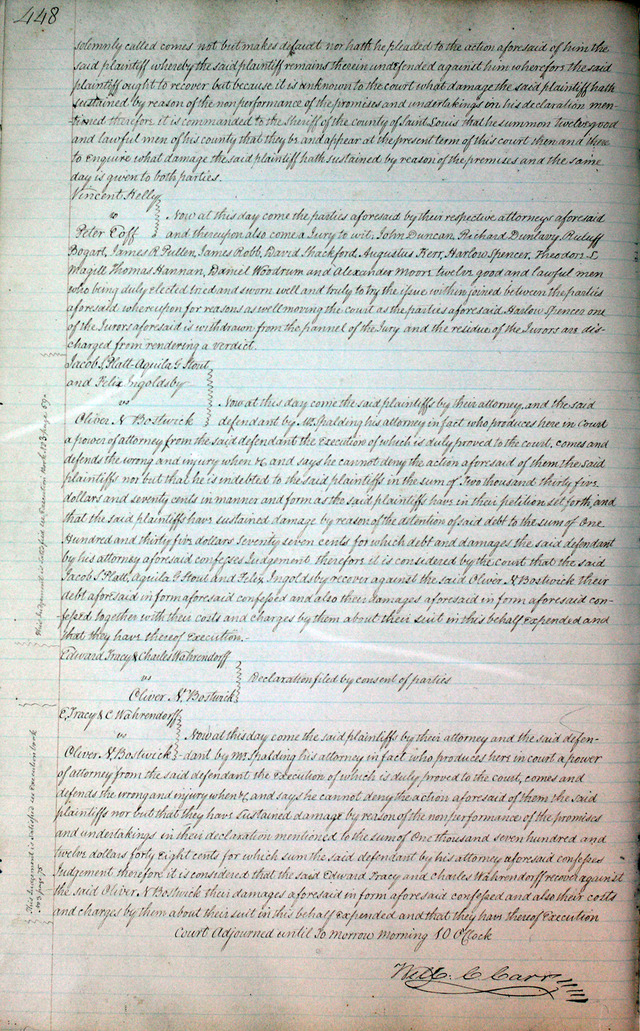 448
solemnly called comes not but makes default nor hath he pleaded to the action aforesaid of him the
said plaintiff whereby the said plaintiff remains therein undefended against him wherefore the said
plaintiff ought to recover but because it is unknown to the court what damage the said plaintiff hath
sustained by reason of the nonperformance of the promises and undertakings in his declaration men-
tioned therefore it is commanded to the Sheriff of the county of Saint Louis that he summon Twelve good
and lawful men of his county that they be and appear at the present term of this court then and there
to enquire what damage the said plaintiff hath sustained by reason of the premises and the same
day is given to both parties.
Vincent Kelly
vs
Now at this day come the parties aforesaid by their respective attorneys aforesaid
Peter Coff and thereupon also come a Jury to wit, John Duncan, Richard Dunlavy, Ruluff
Bogart, James R Pullen, James Robb, David Shackford, Augustus Kerr, Harlow Spencer, Theodore L
Magill Thomas Hannan, Daniel Woodrum and Alexander Moore twelve good and lawful men
who being duly elected tried and sworn well and truly to try the issue within joined between the parties
aforesaid whereupon for reasons as well moving the court as the parties aforesaid Harlow Spencer one
of the Jurors aforesaid is withdrawn from the pannel of the Jury and the residue of the Jurors are dis-
charged from rendering a verdict.
Jacob S Platt Aquila G Stout
and Felix Ingoldsby
vs
Now at this day come the said plaintiffs by their attorney, and the said
Oliver N Bostwick defendant by Mr Spalding his attorney in fact who produces here in Court
a power of attorney from the said defendant the Execution of which is duly proved to the court, comes and
defends the wrong and injury when &c and says he cannot deny the action aforesaid of them the said
plaintiffs nor but that he is indebted to the said plaintiffs in the sum of Two thousand thirty five
dollars and seventy cents in manner and form as the said plaintiffs have in their petition set forth, and
that the said plaintiffs have sustained damage by reason of the detention of said debt to the sum of One
Hundred and thirty five dollars Seventy seven cents for which debt and damages the said defendant
by his attorney aforesaid confesses Judgement therefore it is considered by the court that the said
Jacob S Platt, Aquila G Stout and Felix Ingoldsby recover against the said Oliver N Bostwick their
debt aforesaid in form aforesaid confessed and also their damages aforesaid in form aforesaid con-
fessed together with their costs and charges by them about their suit in this behalf expended and
that they have thereof Execution.
This judgement is satisfied see Execution Book No 3 page 59.
Edward Tracy & Charles Wahrendorff
vs
Declaration filed by consent of parties
Oliver N. Bostwick
E. Tracy & C Wahrendorff
vs
Now at this day come the said plaintiffs by their attorney and the said defen-
Oliver N. Bostwick dant by Mr Spalding his attorney in fact who produces here in court a power
of attorney from the said defendant the Execution of which is duly proved to the court, comes and
defends the wrong and injury when &c, and says he cannot deny the action aforesaid of them the said
plaintiffs nor but that they have sustained damage by reason of the nonperformance of the promises
and undertakings in their declaration mentioned to the sum of One thousand seven hundred and
twelve dollars forty Eight cents for which sum the said defendant by his attorney aforesaid confesses
Judgement therefore it is considered that the said Edward Tracy and Charles Wahrendorff recover against
the said Oliver N Bostwick their damages aforesaid in form aforesaid confessed and also their costs
and charges by them about their suit in this behalf expended and that they have thereof Execution
This judgement is satisfied see Execution book
No 3 page
Court Adjourned until To morrow Morning 10 O'Clock
Wm C Carr